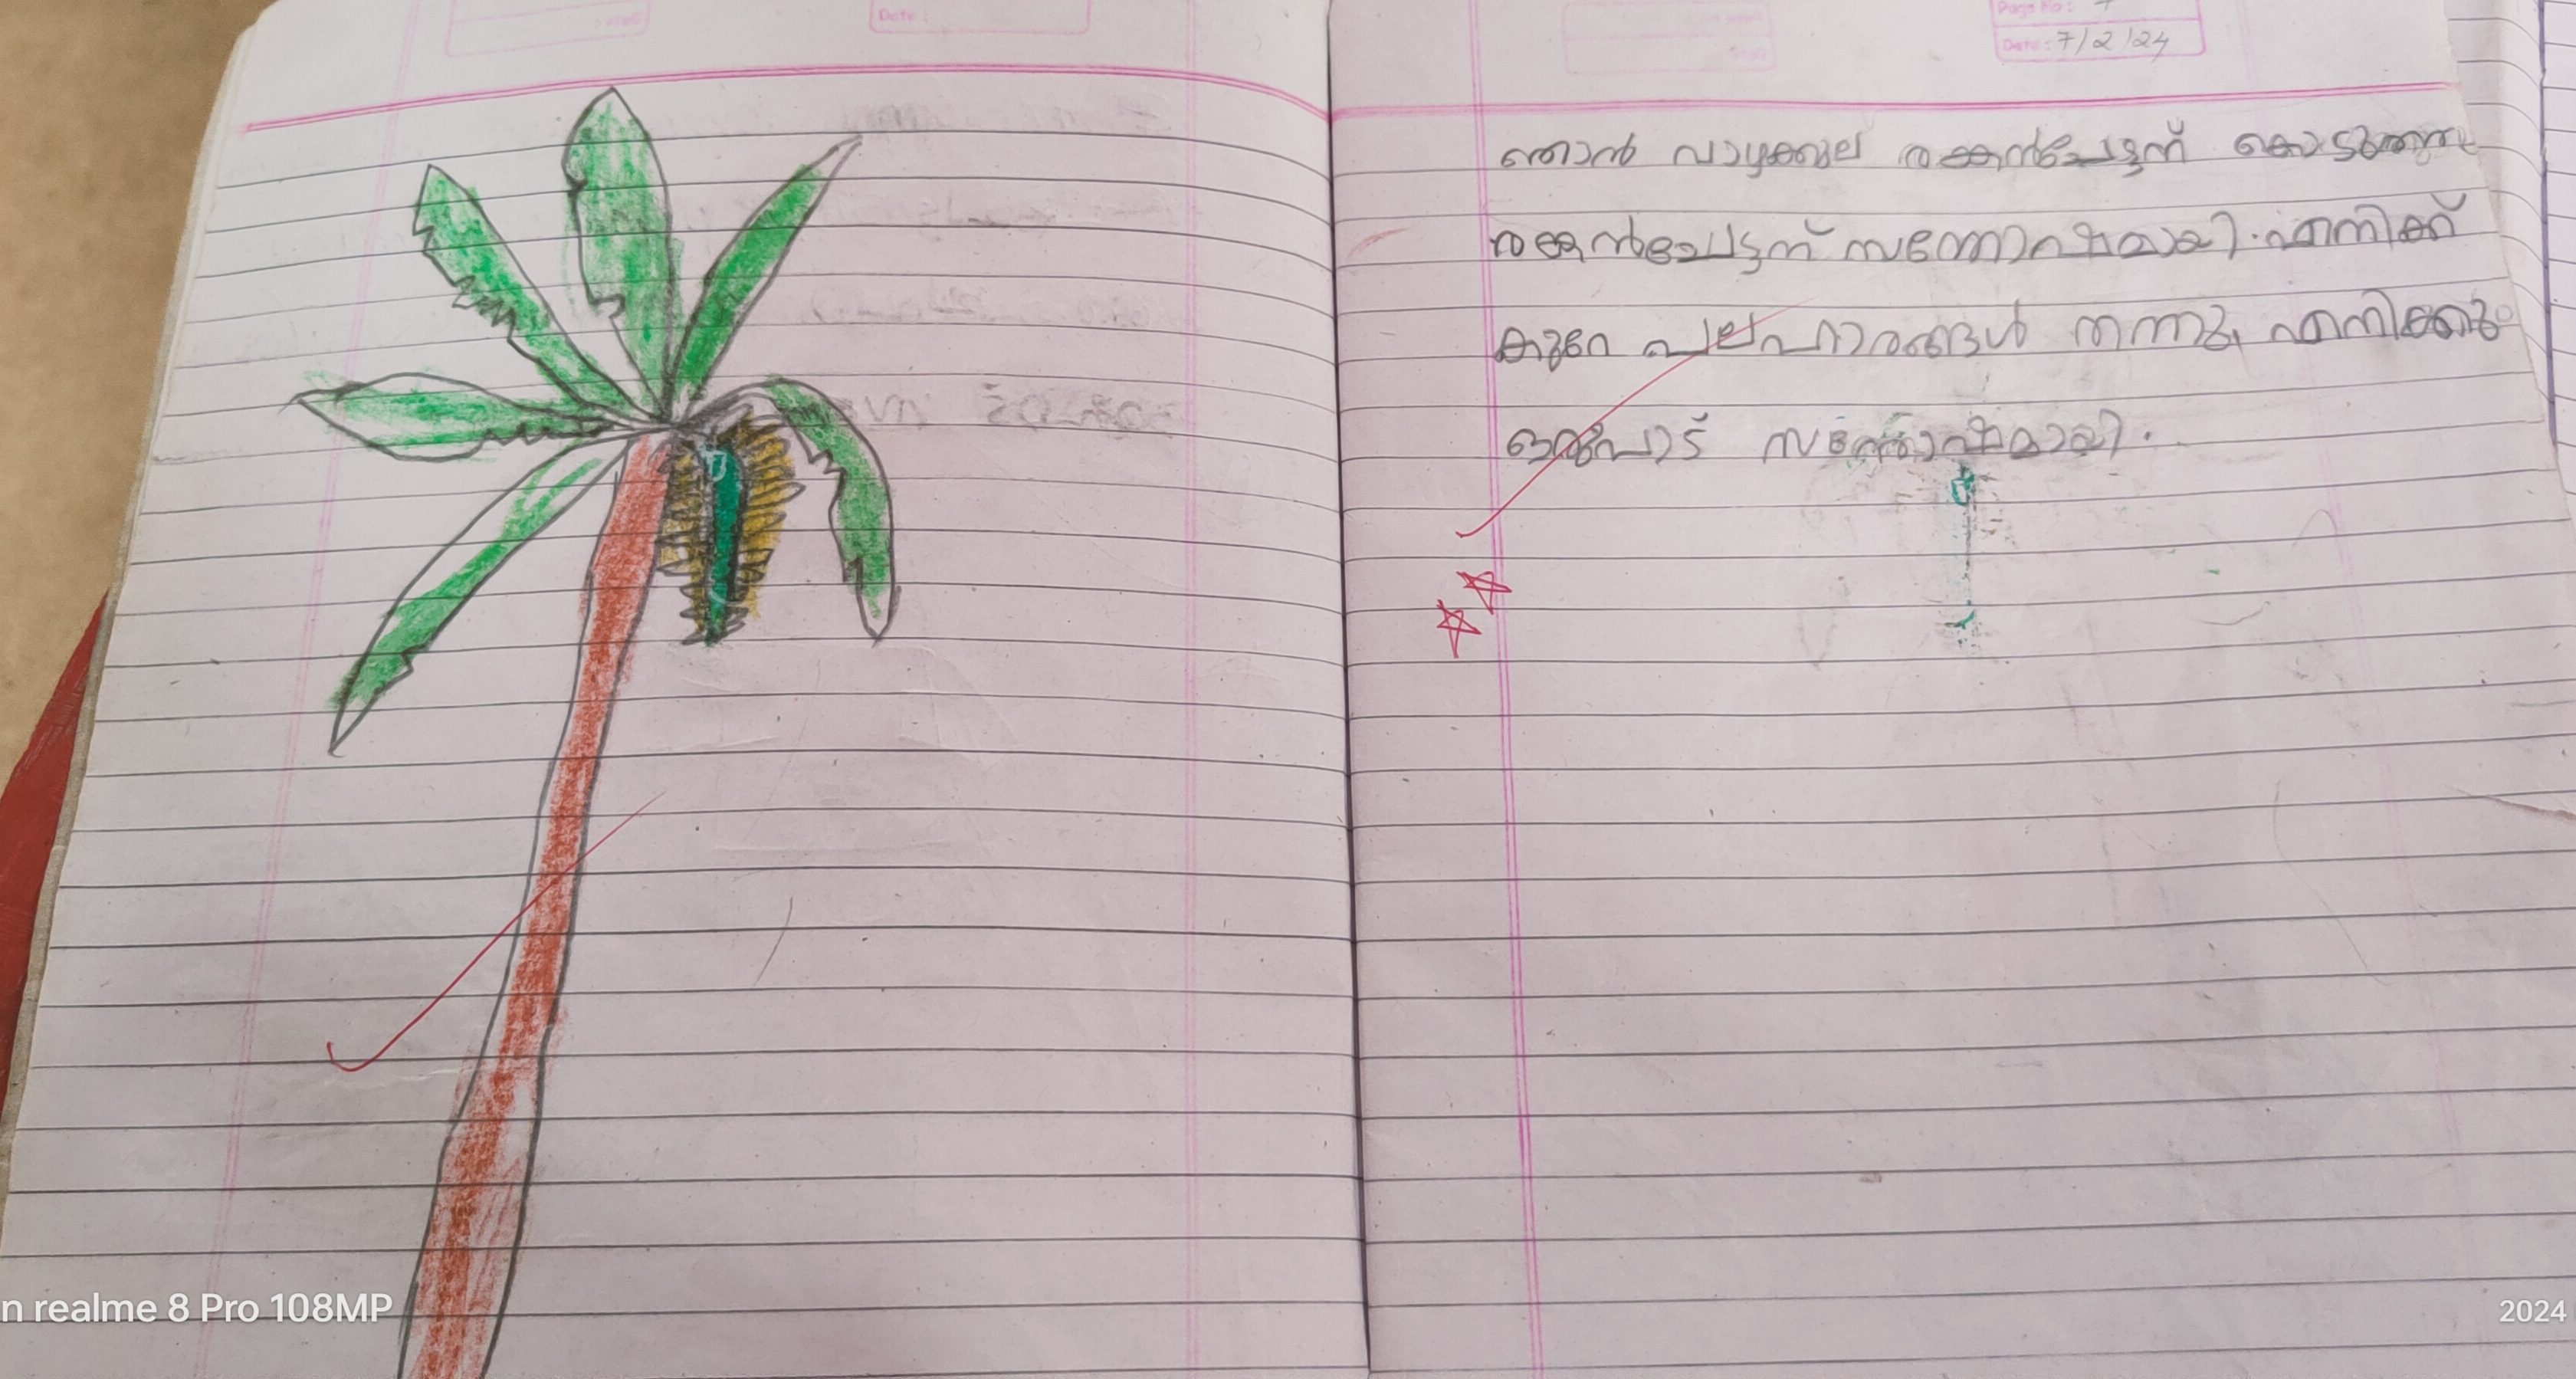 Date :
Page No :
Date : 7/2/24
ഞാൻ വാഴക്കുല രങ്കൻചേട്ടന് കൊടുത്തു
രങ്കൻചേട്ടന് സന്തോഷമായി. എനിക്ക്
കുറേ പലഹാരങ്ങൾ തന്നു, എനിക്കും
ഒരുപാട് സന്തോഷമായി.
n realme 8 Pro 108MP
2024